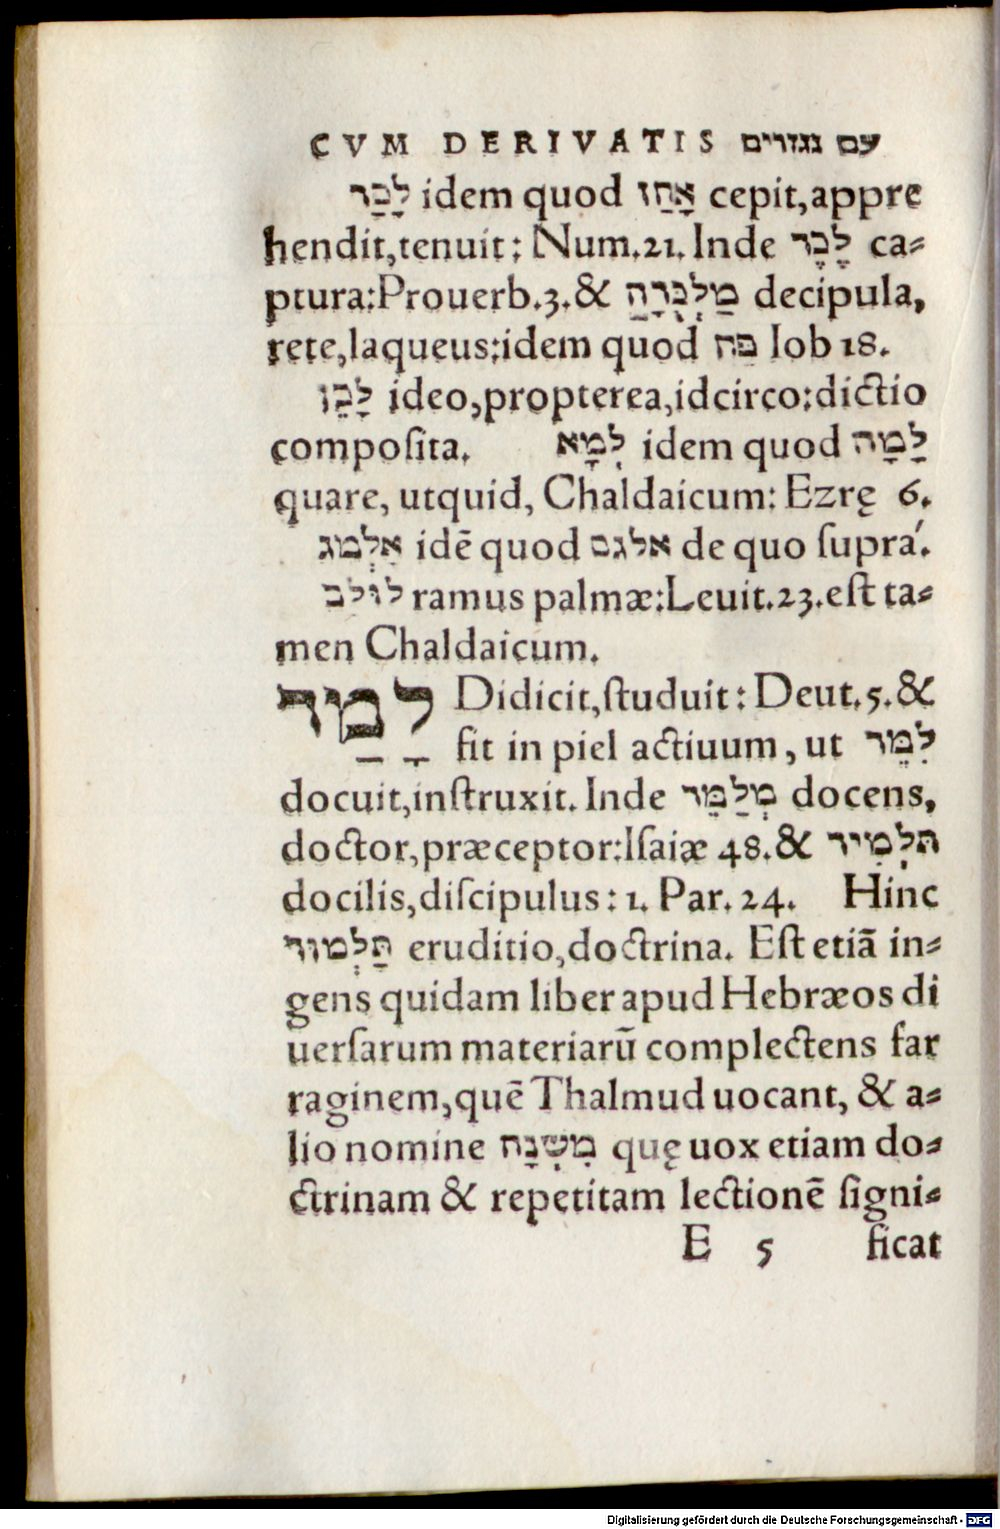 CVM DERIVATIS עם נגזרים
לָכַד idem quod אָחַז cepit,appre
hendit,tenuit: Num.21. Inde לֶכֶד ca⸗
ptura:Prouerb.3.& מַלְכֻּדָה decipula,
rete,laqueus:idem quod פח Iob 18.
לָכֵן ideo,propterea,idcirco:dictio
composita. לְמָא idem quod לָמָה
quare, utquid, Chaldaicum: Ezrę 6.
אַלְמג idē quod אלגם de quo supra´.
לולב ramus palmæ:Leuit.23.est ta⸗
men Chaldaicum.
לָמַד Didicit,studuit: Deut.5.&
fit in piel actiuum, ut לִמֵּד
docuit,instruxit. Inde מְלַמֵּד docens,
doctor,præceptor:Isaiæ 48.& תלְמיד
docilis,discipulus: 1. Par. 24. Hinc
תַּלְמוד eruditio,doctrina. Est etiā in⸗
gens quidam liber apud Hebræos di
uersarum materiarū complectens far
raginem,quē Thalmud uocant, & a⸗
lio nomine מִשְׁנָה quę uox etiam do⸗
ctrinam & repetitam lectionē signi⸗
E 5 ficat
Digitalisierung gefördert durch die Deutsche Forschungsgemeinschaft - DFG